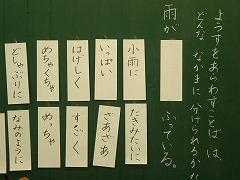 ようすをあらわすことばは、
どんな なかまに 分けられるかな
雨が
ふっている。
小雨に
いっぱい
はげしく
めちゃくちゃ
どしゃぶりに
たきみたいに
ざあざあ
すごく
めっちゃ
なみのように